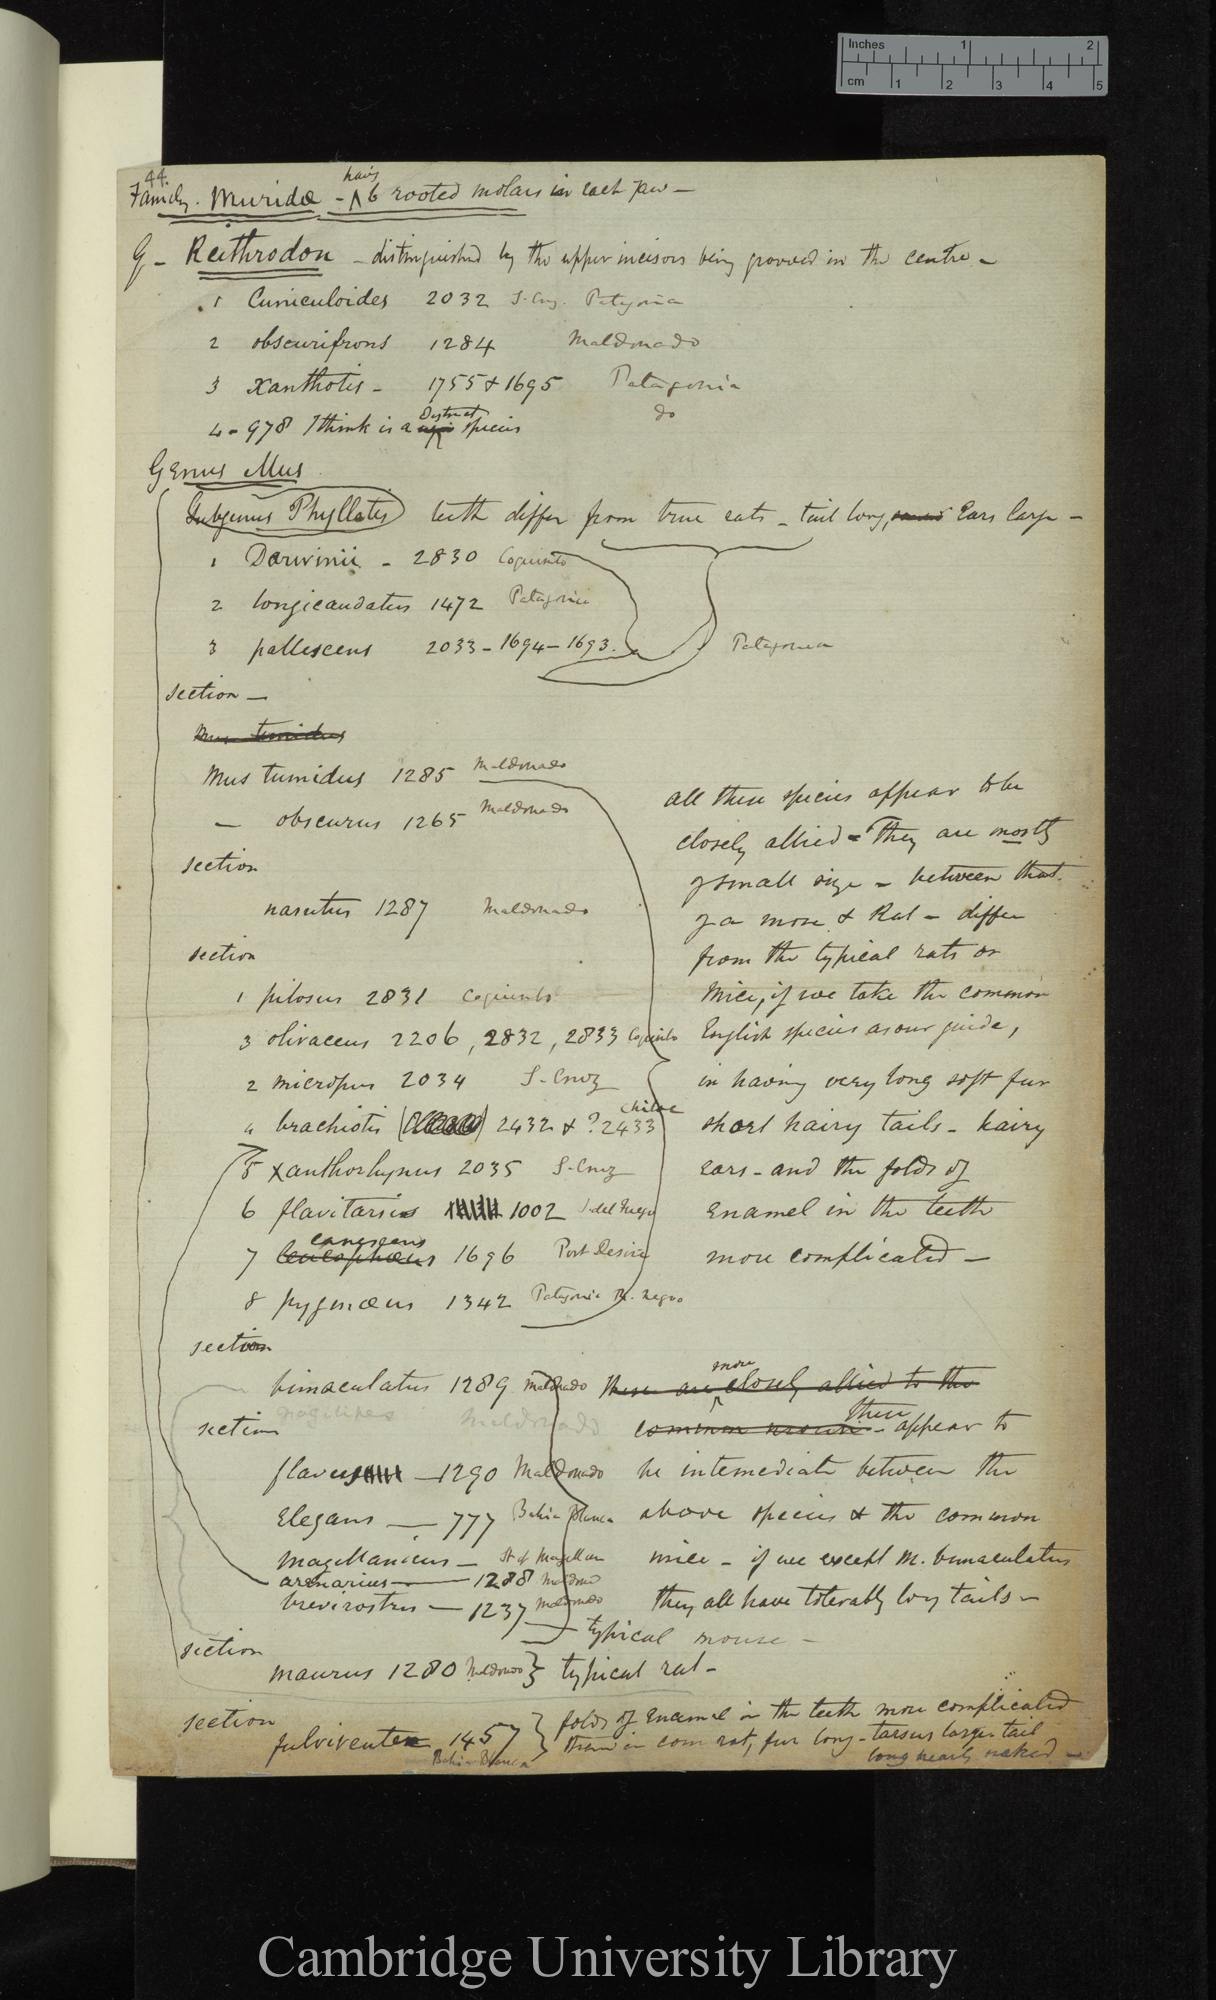 Inches 1 2
cm 1 2 3 4 5
44.
Family. Muridæ - ^ 6 rooted molars in each jaw -
G - Reithrodon - distinguished by the upper incisors being grooved in the centre -
1 Cuniculoides 2032 S. Cruz. Patagonia
2 obscurifrons 1284 Maldonado
3 Xanthotis - 1755 + 1695 Patagonia
do
4 - 978 I think is a Distinct species
Genus Mus
Subgenus Phyllotis teeth differ from true rats - tail long, Ears large -
1 Darwinii - 2830 Coquimbo
2 longicaudatus 1472 Patagonia
3 pallescens 2033 - 1694 - 1693. Patagonia
section -
Mus tumidus
Mus tumidus 1285 Maldonado
- obscurus 1265 Maldonado
section
nasutus 1287 Maldonado
section
1 pilosus 2831 Coquimbo
3 olivaceus 2206, 2832, 2833 Coquimbo
2 micropus 2034 S. Cruz
4 brachiotis 2432 + ? 2433 Chiloe
5 Xanthorhynus 2035 S. Cruz
6 flavitarsis 1002 T. del Fuego
canescens
7 leucophæus 1696 Port Desire
8 pygmæus 1342 Patagonia R. Negro
all these species appear to be
closely allied - They are mostly
of small size - between that
of a mouse & Rat - differ
from the typical rats or
Mice, if we take the common
English species as our guide,
in having very long soft fur
short hairy tails - hairy
ears - and the folds of
Enamel in the teeth
more complicated -
section
bimaculatus 1289 Maldonado
gracilipes Maldonado
section
flavus - 1290 Maldonado
Elegans - 777 Bahia blanca
Magellanicus - St of Magellan
arenarius - 1288 Maldonado
brevirostris - 1237 Maldonado
more
These are closely allied to the
common mouse - these appear to
be intermediate between the
above species & the common
mice - if we except M. bimaculatus
they all have tolerably long tails -
typical mouse -
section
maurus 1280 Maldonado } typical rat -
section
fulviventer 1457 } folds of Enamel in the teeth more complicated
Bahia Blanca
than in com rat, fur long - tarsus large tail
long nearly naked -
Cambridge University Library